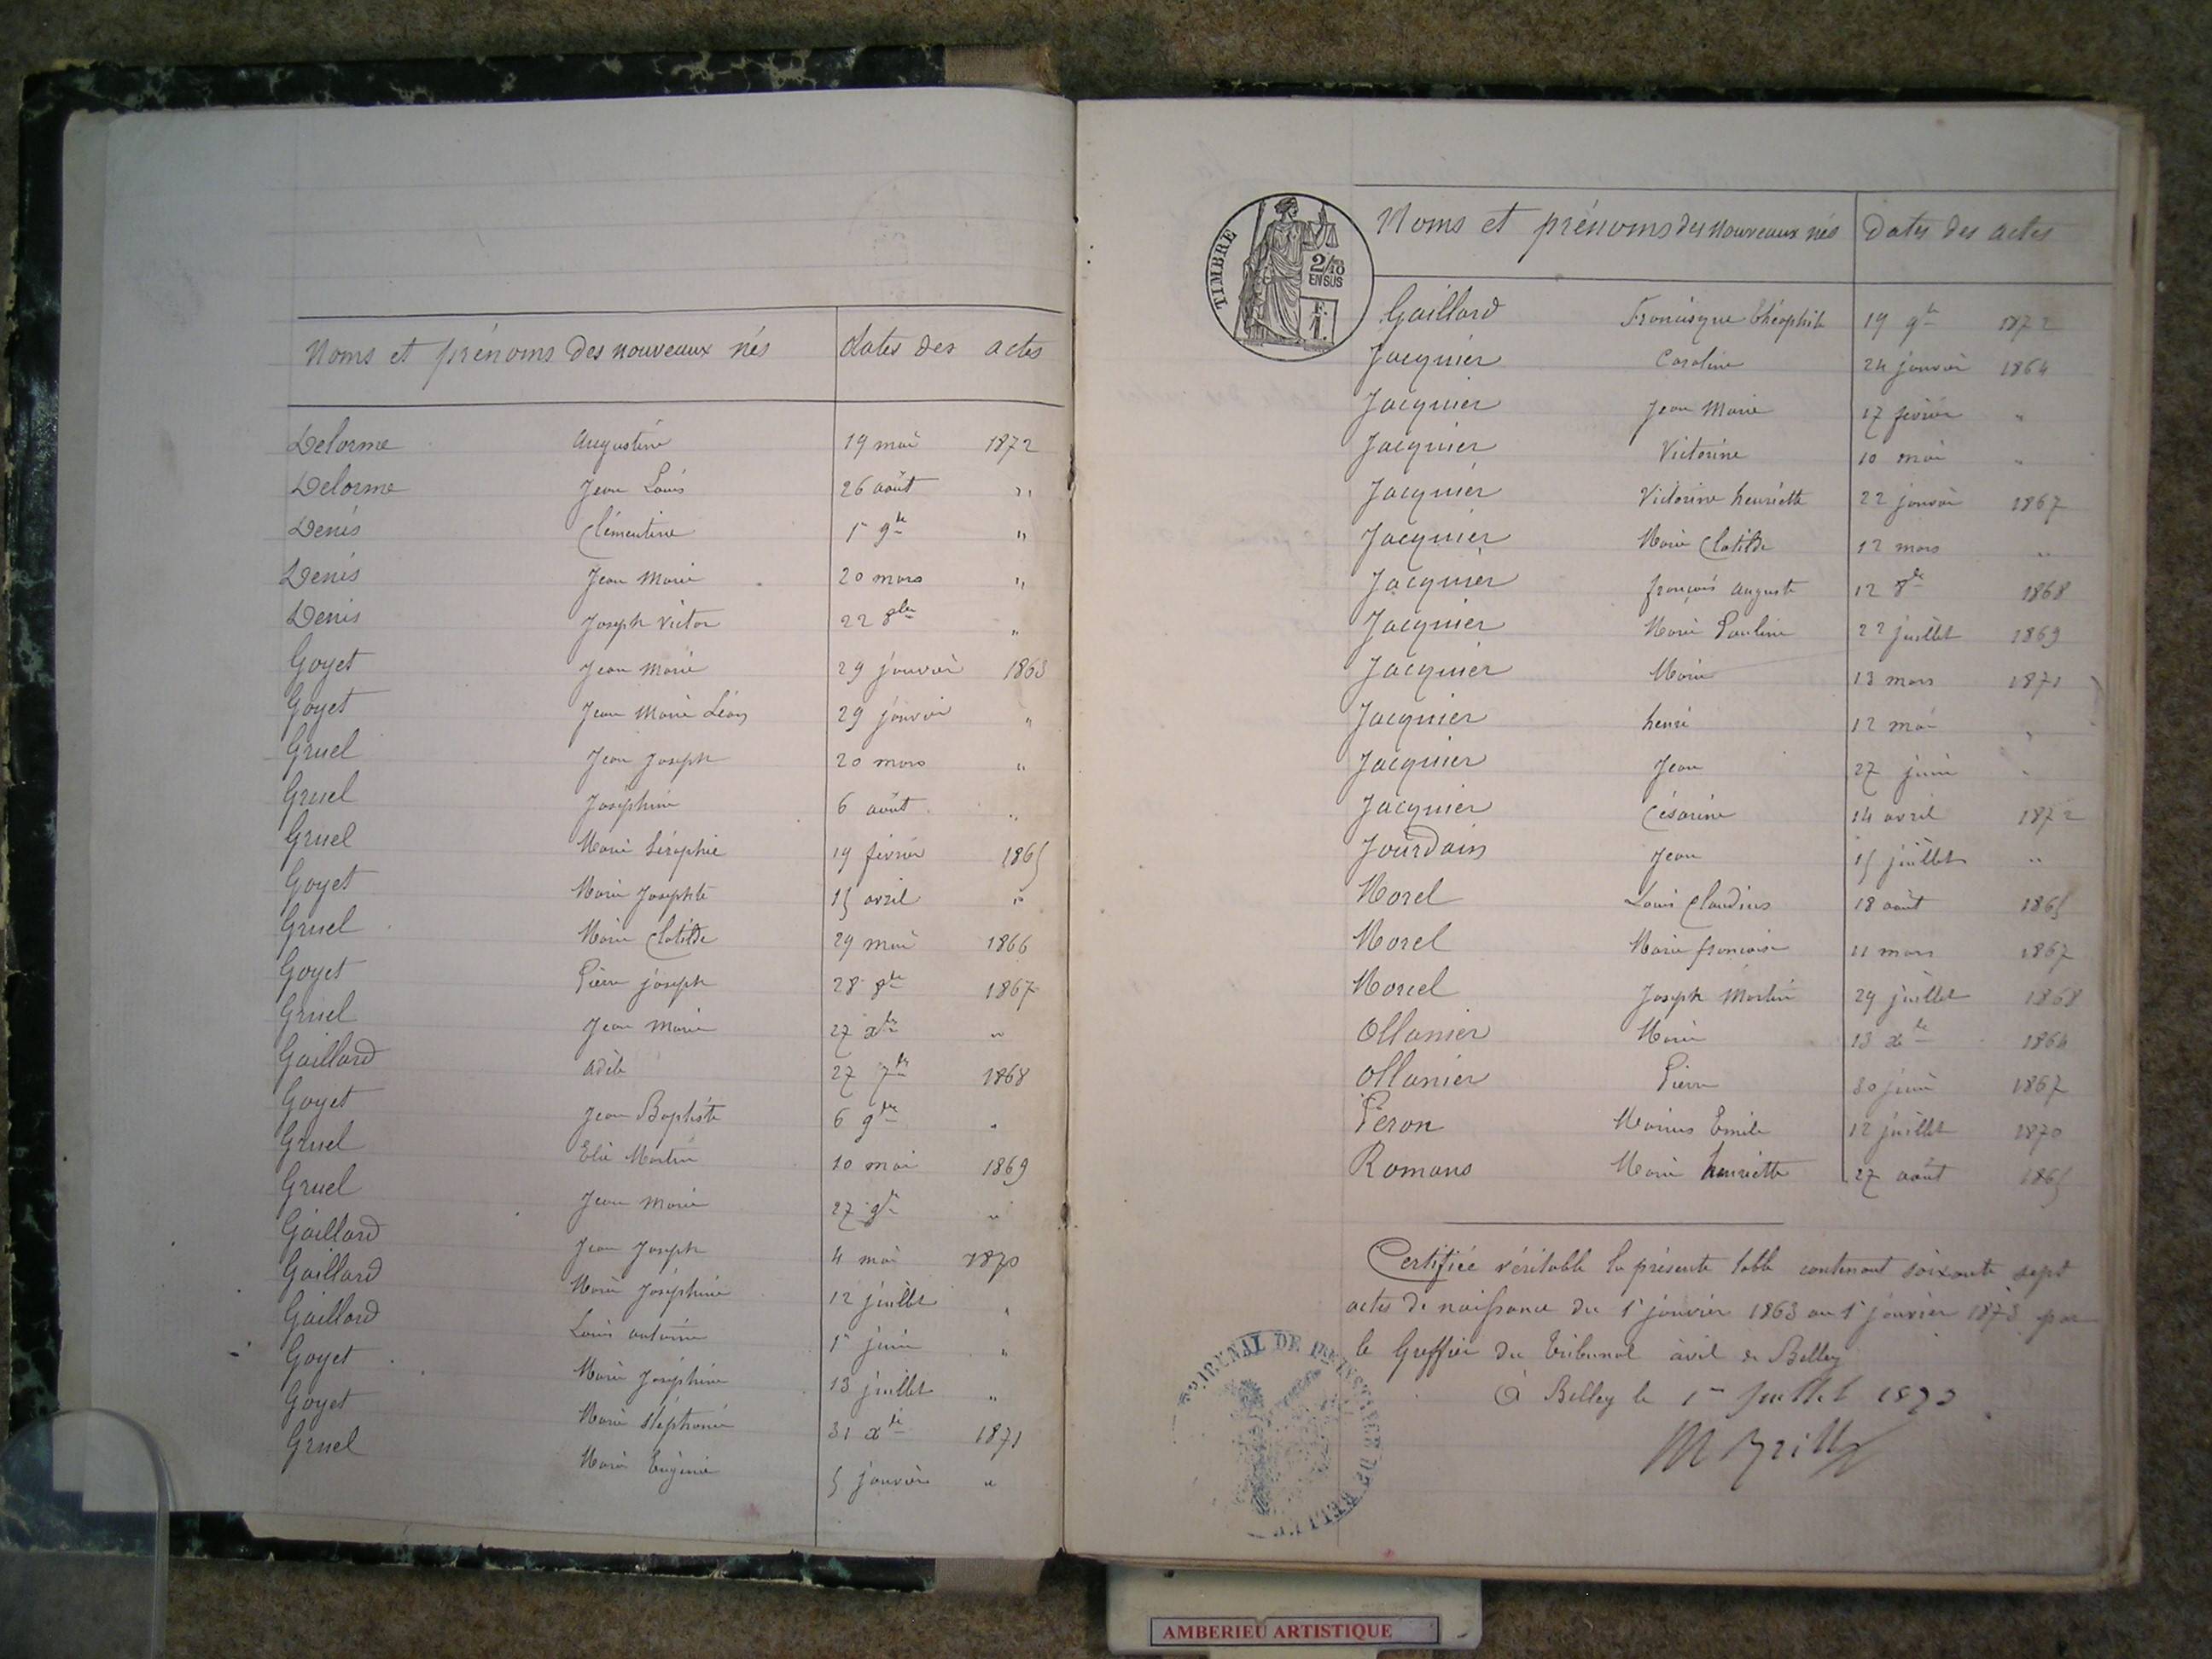 Noms et prénoms des nouveaux nés dates des actes
Delorme Augustine 19 mai 1872
Delorme Jean Louis 26 août "
Denis Clémentine 1er 9bre "
Denis Jean Marie 20 mars "
Denis Joseph Victor 22 8bre "
Goyet Jean Marie 29 janvier 1863
Goyet Jean Marie Léon 29 janvier "
Gruel Jean Joseph 20 mars "
Gruel Joséphine 6 août "
Gruel Marie Séraphie 19 février 1865
Goyet Marie Josephte 15 avril "
Gruel Marie Clotilde 29 mai 1866
Goyet Pierre joseph 28 8bre 1867
Gruel Jean Marie 27 xbre "
Gaillard Adèle 27 7bre 1868
Goyet Jean Baptiste 6 9bre "
Gruel Elie Martin 10 mai 1869
Gruel Jean Marie 27 9bre "
Gaillard Jean Joseph 4 mai 1870
Gaillard Marie Joséphine 12 juillet "
Gaillard Louis antoine 1er juin "
Goyet Marie Joséphine 13 juillet "
Goyet Marie Stéphanie 31 xbre 1871
Gruel Marie Eugénie 5 janvier "
TIMBRE
2/10
EN SUS
F.
1.
Noms et prénoms des nouveaux nés Dates des actes
Gaillard Francisque théophile 19 9bre 1872
Jacquier Caroline 24 janvier 1864
Jacquier Jean Marie 17 février "
Jacquier Victorine 10 mai "
Jacquier Victorine henriette 22 janvier 1867
Jacquier Marie Clotilde 12 mars "
Jacquier françois auguste 12 8bre 1868
Jacquier Marie Pauline 22 juillet 1869
Jacquier Marie 13 mars 1871
Jacquier henri 12 mai "
Jacquier Jean 27 juin "
Jacquier Césarine 14 avril 1872
Jourdain Jean 15 juillet "
Morel Louis Claudius 18 août 1865
Morel Marie françoise 11 mars 1867
Morel Joseph Martin 29 juillet 1868
Ollanier Marie 13 xbre 1864
Ollanier Pierre 30 juin 1867
Péron Marius Emile 12 juillet 1870
Romans Marie henriette 27 août 1865
Certifiée véritable la présente table contenant soixante sept
actes de naissance du 1er janvier 1863 au 1er janvier 1873 par
le Greffier du tribunal civil de Belley
à Belley le 1er Juillet 1873
TRIBUNAL DE 1ERE INSTANCE DE BELLEY
AMBERIEU ARTISTIQUE